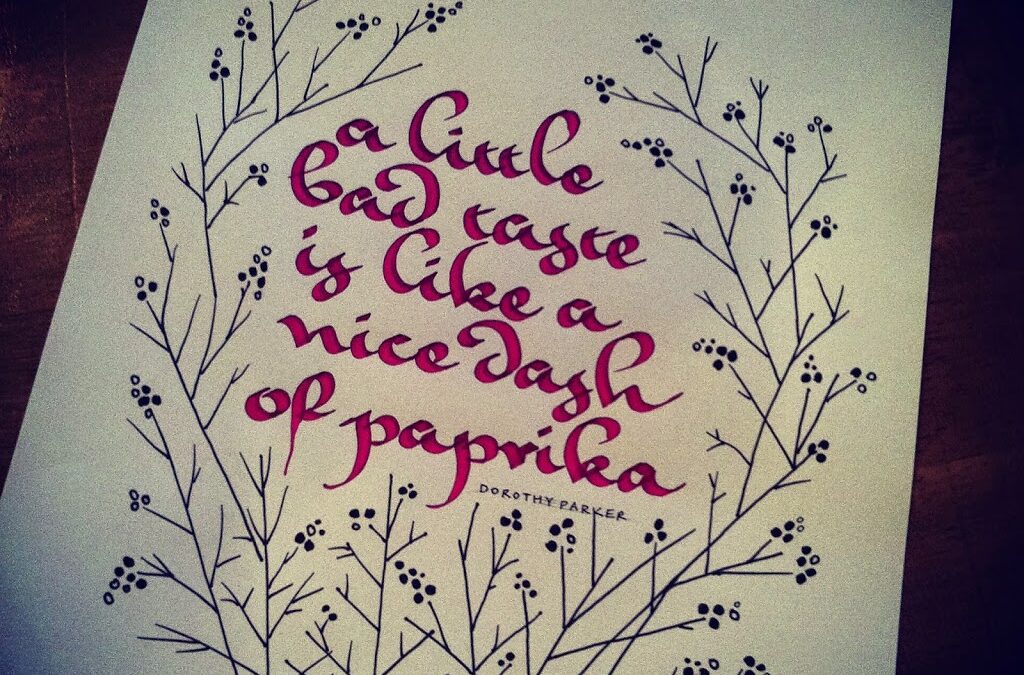 a little
bad taste
is like a
nice dash
of paprika
DOROTHY PARKER